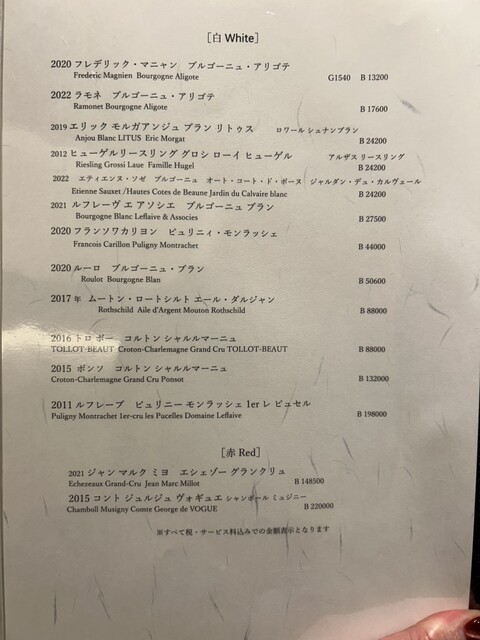 [白 White]
2020 フレデリック・マニャン ブルゴーニュ・アリゴテ
Frederic Magnien Bourgogne Aligote G1540 B 13200
2022 ラモネ ブルゴーニュ・アリゴテ
Ramonet Bourgogne Aligote B 17600
2019 エリック モルガアンジュ ブラン リトゥス ロワール シュナンブラン
Anjou Blanc LITUS Eric Morgat B 24200
2012 ヒューゲルリースリング グロシ ローイ ヒューゲル アルザス リースリング
Riesling Grossi Laue Famille Hugel B 24200
2022 エティエンヌ・ソゼ ブルゴーニュ オート・コート・ド・ボーヌ ジャルダン・デュ・カルヴェール
Etienne Sauxet /Hautes Cotes de Beaune Jardin du Calvaire blanc B 24200
2021 ルフレーヴ エ アソシエ ブルゴーニュ ブラン
Bourgogne Blanc Leflaive & Associes B 27500
2020 フランソワカリヨン ピュリニィ・モンラッシェ
Francois Carillon Puligny Montrachet B 44000
2020 ルーロ ブルゴーニュ・ブラン
Roulot Bourgogne Blan B 50600
2017 年 ムートン・ロートシルト エール・ダルジャン
Rothschild Aile d'Argent Mouton Rothschild B 88000
2016 トロ ボー コルトン シャルルマーニュ
TOLLOT-BEAUT Croton-Charlemagne Grand Cru TOLLOT-BEAUT B 88000
2015 ポンソ コルトン シャルルマーニュ
Croton-Charlemagne Grand Cru Ponsot B 132000
2011 ルフレーブ ピュリニー モンラッシェ 1er レ ピュセル
Puligny Montrachet 1er-cru les Pucelles Domaine Leflaive B 198000
[赤 Red]
2021 ジャン マルク ミヨ エシェゾー グランクリュ
Echezeaux Grand-Cru Jean Marc Millot B 148500
2015 コント ジョルジュ ヴォギュエ シャンボール ミュジニー
Chamboll Musigny Comte George de VOGUE B 220000
※すべて税・サービス料込みでの金額表示となります